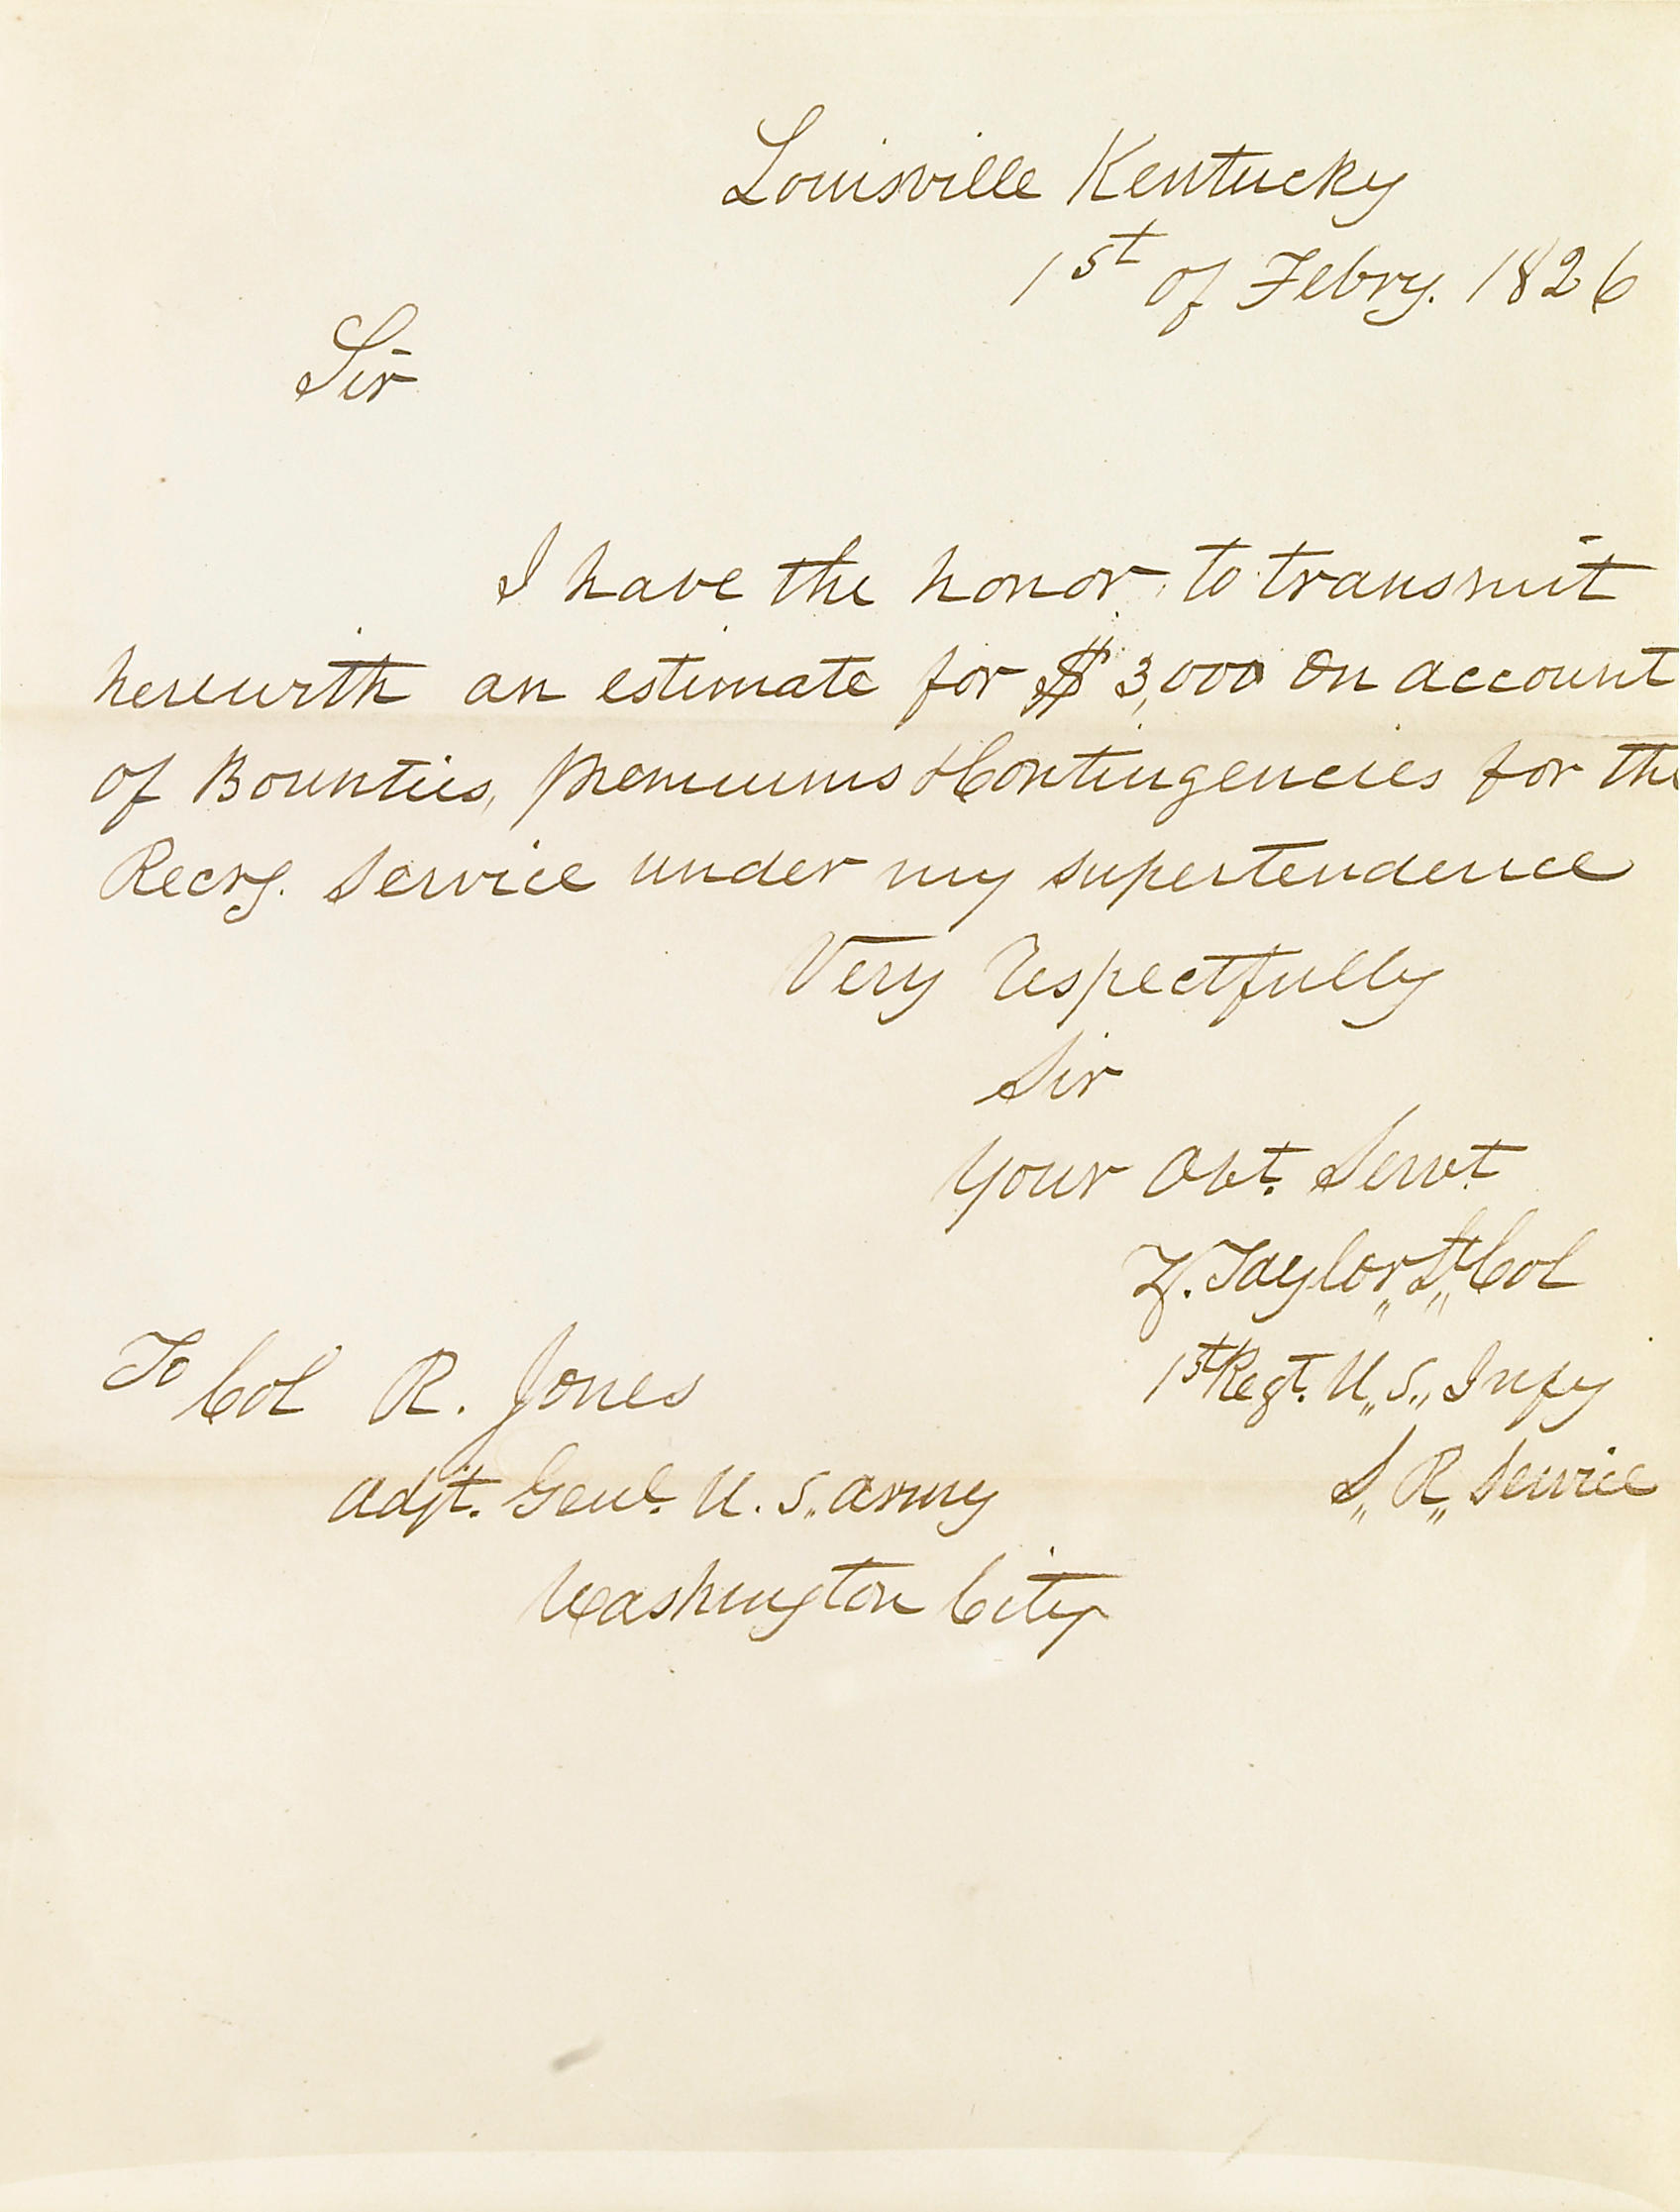 Louisville Kentucky
1st of Febry. 1826
Sir
I have the honor to transmit
herewith an estimate for $3,000 on account
of Bounties, premiums & Contingencies for the
Recrg. Service under my supertendence
Very respectfully
Sir
Your Obt. Servt.
Z. Taylor, Lt Col
1st Regt. U. S. Infy
S. R. Service
To Col R. Jones
Adjt. Genl. U. S. Army
Washington City